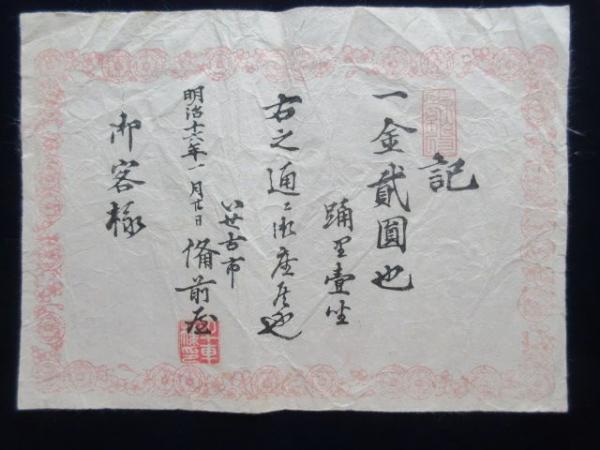 記
一金貳圓也
踊里壹坐
右之通ニ御座候也
明治十六年一月廿日
いせ古市
備前屋
御客様